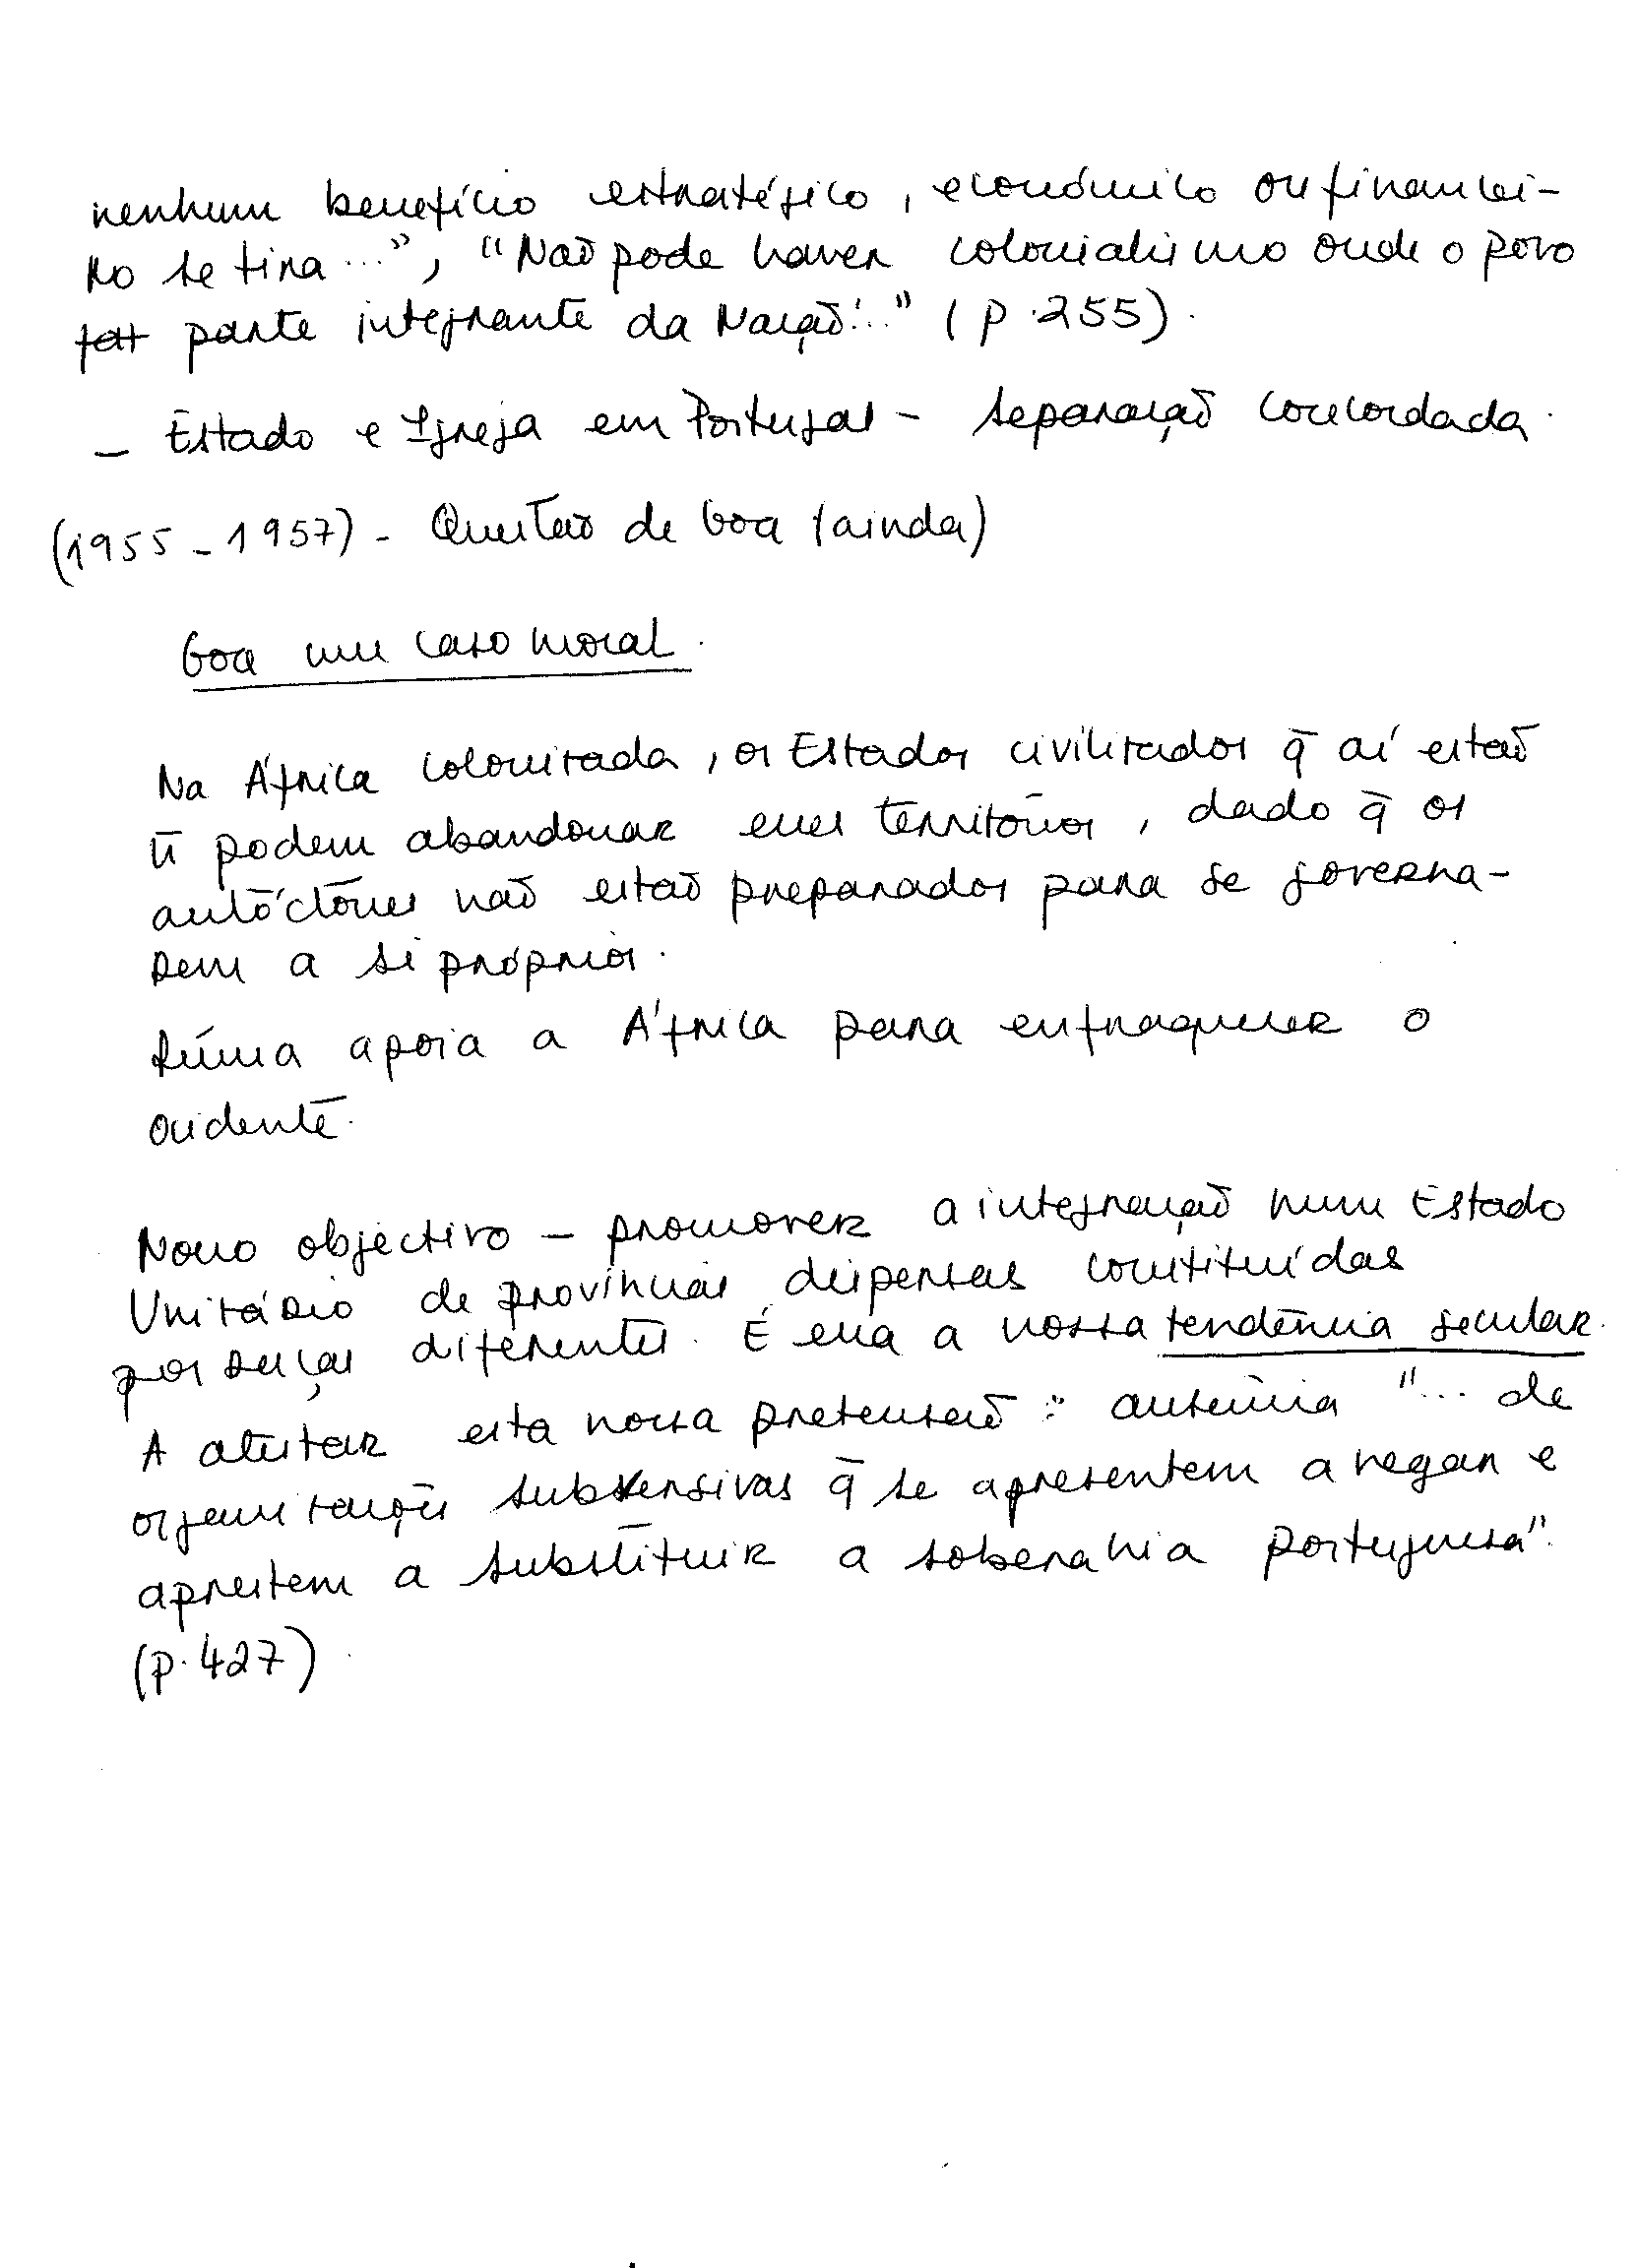 nenhum benefício estratégico, económico ou financei-
ro se tira...", "Não pode haver colonialismo onde o povo
parte integrante da Nação..." (p.255).
- Estado e Igreja em Portugal - separação concordada.
(1955-1957) - Questão de Goa (ainda)
Goa um caso moral.
Na África colonizada, os Estados civilizados q̄ aí estão
ñ podem abandonar esses territórios, dado q̄ os
autóctones não estão preparados para se governa-
rem a si próprios.
Rússia apoia a África para enfraquecer o
ocidente.
Novo objectivo - promover a integração num Estado
Unitário de províncias dispersas constituídas
por raças diferentes. É essa a nossa tendência secular.
A atestar esta nossa pretensão: ausência "... de
organizações subversivas q̄ se apresentem a negar e
aprestem a substituir a soberania portuguesa".
(p.427).